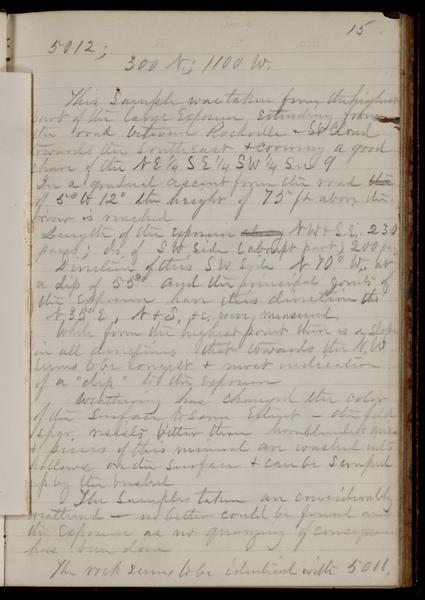 15.
5012;
300 N.; 1100 W.
This Sample was taken from the highest
part of the large Exposure Extending from
the road between Rockville & St Cloud
towards the Southeast & covering a good
share of the NE¼ SE¼ SW¼ Sec 9
In a gradual ascent from the road the
of 5° to 12° the height of 75 ft above the
is reached
Length of the Exposure NW & SE, 230
paces; do. of SW side (abrupt part) 200 pa-
Direction of this SW Side N 70° W., at
a dip of 55° and the principal joints of
the Exposure have this direction tho
N 35° E, N & S, &c. were measured
While from the highest point there is a slope
in all directions that towards the N.W
seems to be longest & most indicative
of a "dip" to the Exposure
Weathering has changed the color
of the surface to some Extent – the feld
spar resists better than hornblende & mica
& pieces of this mineral are washed into
hollows on the surface & can be scraped
up by the bushel
The Samples taken are considerably
weathered – no better could be found on
the Exposure as no quarrying of consequence
has been done
The rock seems to be identical with 5011.